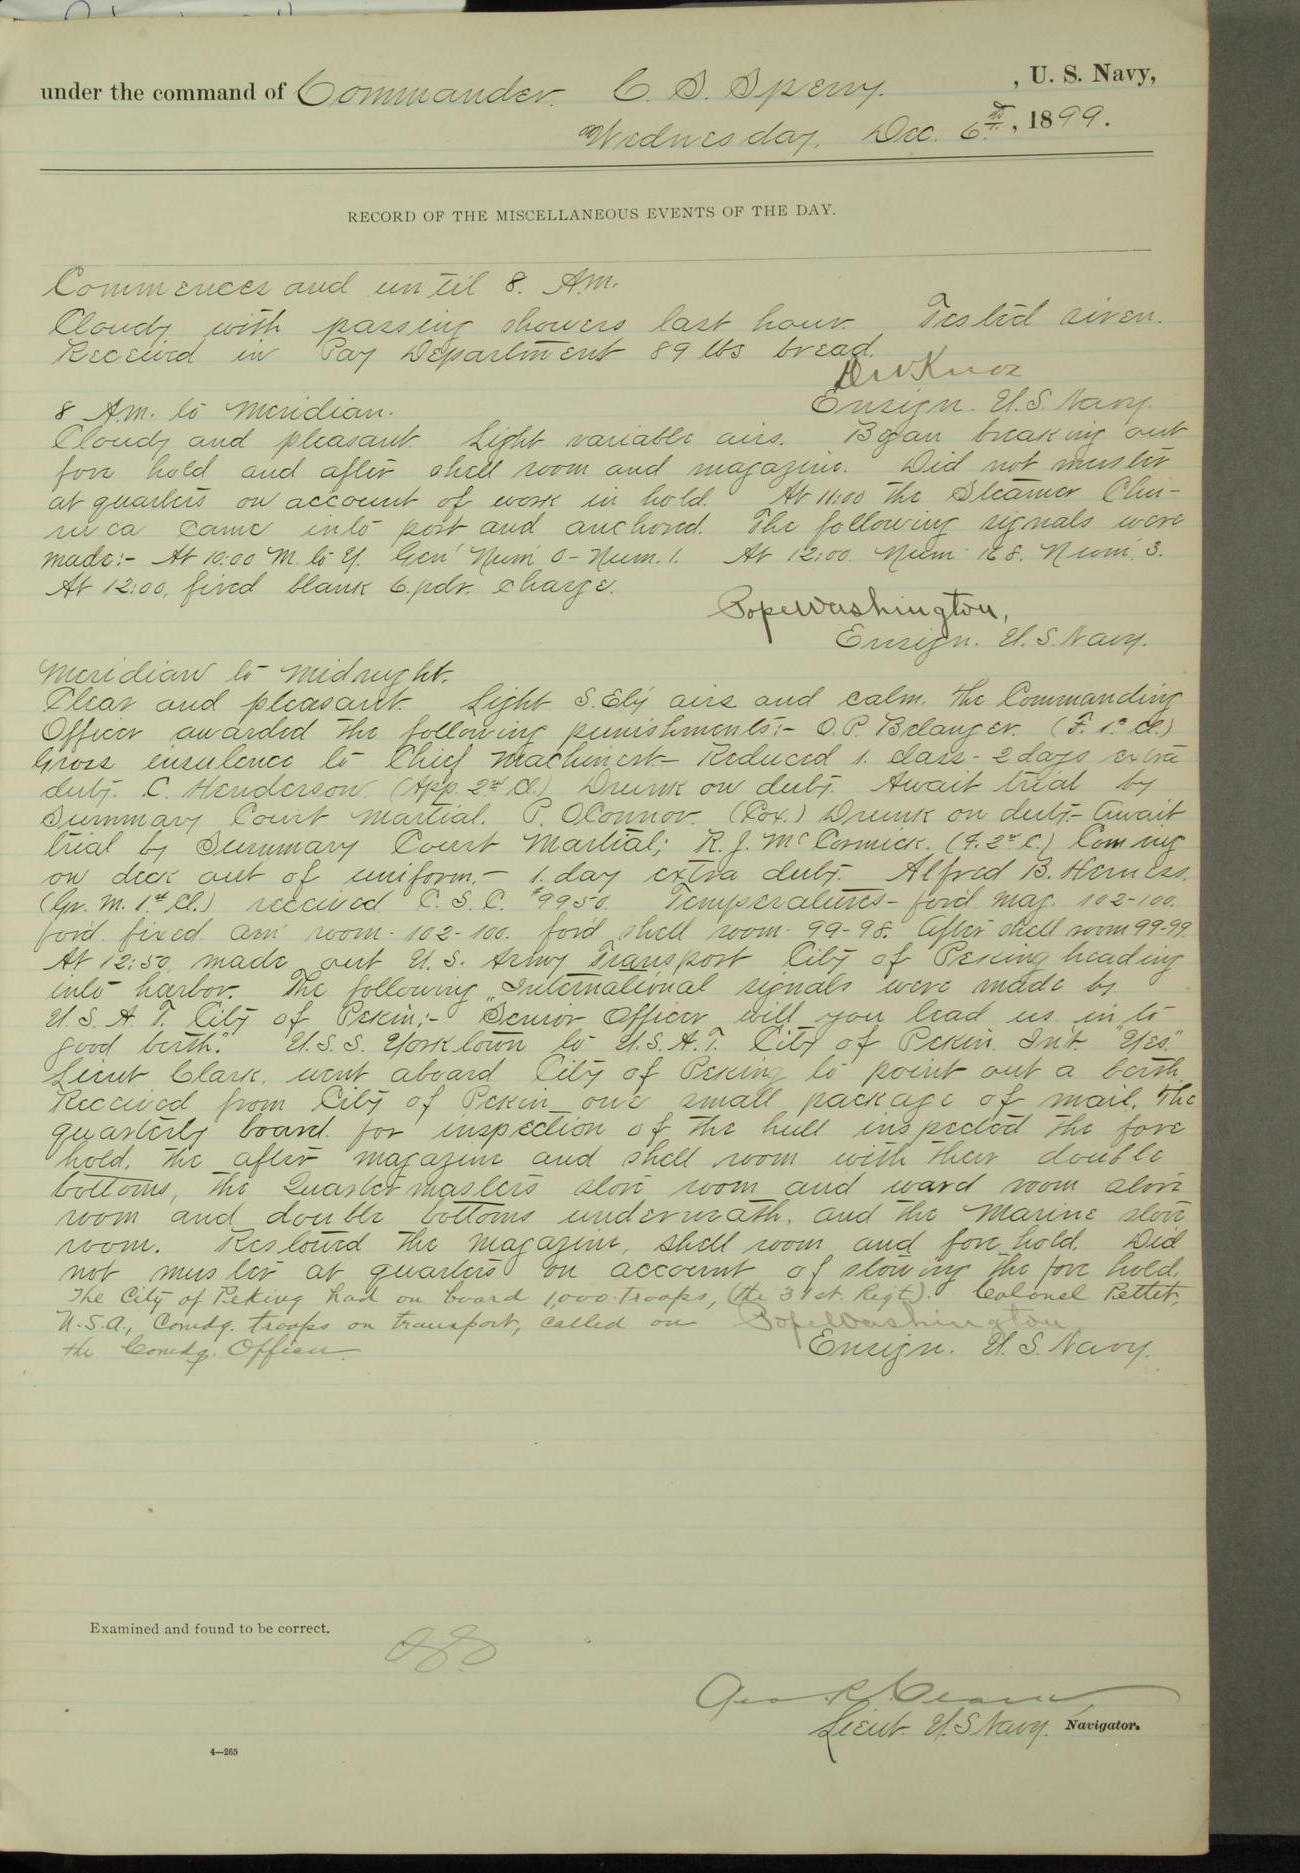 under the command of Commander. C. S. Sperry. , U. S. Navy,
Wednesday, Dec. 6th, 1899.
RECORD OF THE MISCELLANEOUS EVENTS OF THE DAY.
Commences and until 8. A.m.
Cloudy with passing showers last hour. Tested siren.
Received in Pay Department 89 lbs bread.
DWKnox
Ensign. U.S. Navy.
8 A.m. to meridian.
Cloudy and pleasant. Light variable airs. Began breaking out
fore hold and after shell room and magazine. Did not muster
at quarters on account of work in hold. At 11:00 the Steamer
came into port and anchored. The following signals were
made:- At 10:00 M. to Y. Gen' Num' 0 - Num. 1. At 12:00. Num. 168. Num. 3.
At 12:00, fired blank 6.pdr. charge.
PopeWashington,
Ensign. U.S. Navy.
Meridian to Midnight.
Clear and pleasant. Light S.Ely airs and calm. The Commanding
Officer awarded the following punishments:- O.P. Belanger. (F. 1st Cl.)
Gross insulence to Chief Machinest - Reduced 1. class - 2 days extra
duty. C. Henderson. (App. 2nd Cl.) Drunk on duty. Await trial by
Summary Court Martial. P. OConnor. (Cox.) Drunk on duty - Await
trial by Summary Court Martial; R. J. McCormick. (F. 2nd C.) Coming
on deck out of uniform. - 1. day extra duty. Alfred B. Herness.
(Gr. M. 1st Cl.) received C. S. C. #9950. Temperatures - for'd. mag. 102-100.
for'd. fixed am' room. 102-100. for'd shell room. 99-98. After shell room 99-99.
At 12:50, made out U. S. Army Transport City of Peking heading
into harbor. The following International signals were made by
U.S.A.T. City of Pekin:- "Senior Officer will you lead us in to
good berth." U.S.S. Yorktown to U.S.A.T. City of Pekin. Int. "Yes."
Lieut Clark. went aboard City of Peking to point out a berth.
Received from City of Pekin one small package of mail. The
quarterly board for inspection of the hull inspected the fore
hold, the after magazine and shell room with their double
bottoms, the Quartermasters store room and ward room store
room and double bottoms underneath, and the Marine store
room. Restowed the magazine, shell room and fore hold. Did
not muster at quarters on account of stowing the fore hold.
The City of Peking had on board 1,000 troops, (the 31st. Regt.). Colonel Pettit,
U.S.A., Comdg. troops on transport, called on PopeWashington
the Comdg. Officer. Ensign. U.S. Navy.
Examined and found to be correct.
Geo. R.
Lieut. U.S Navy. Navigator.
4—265